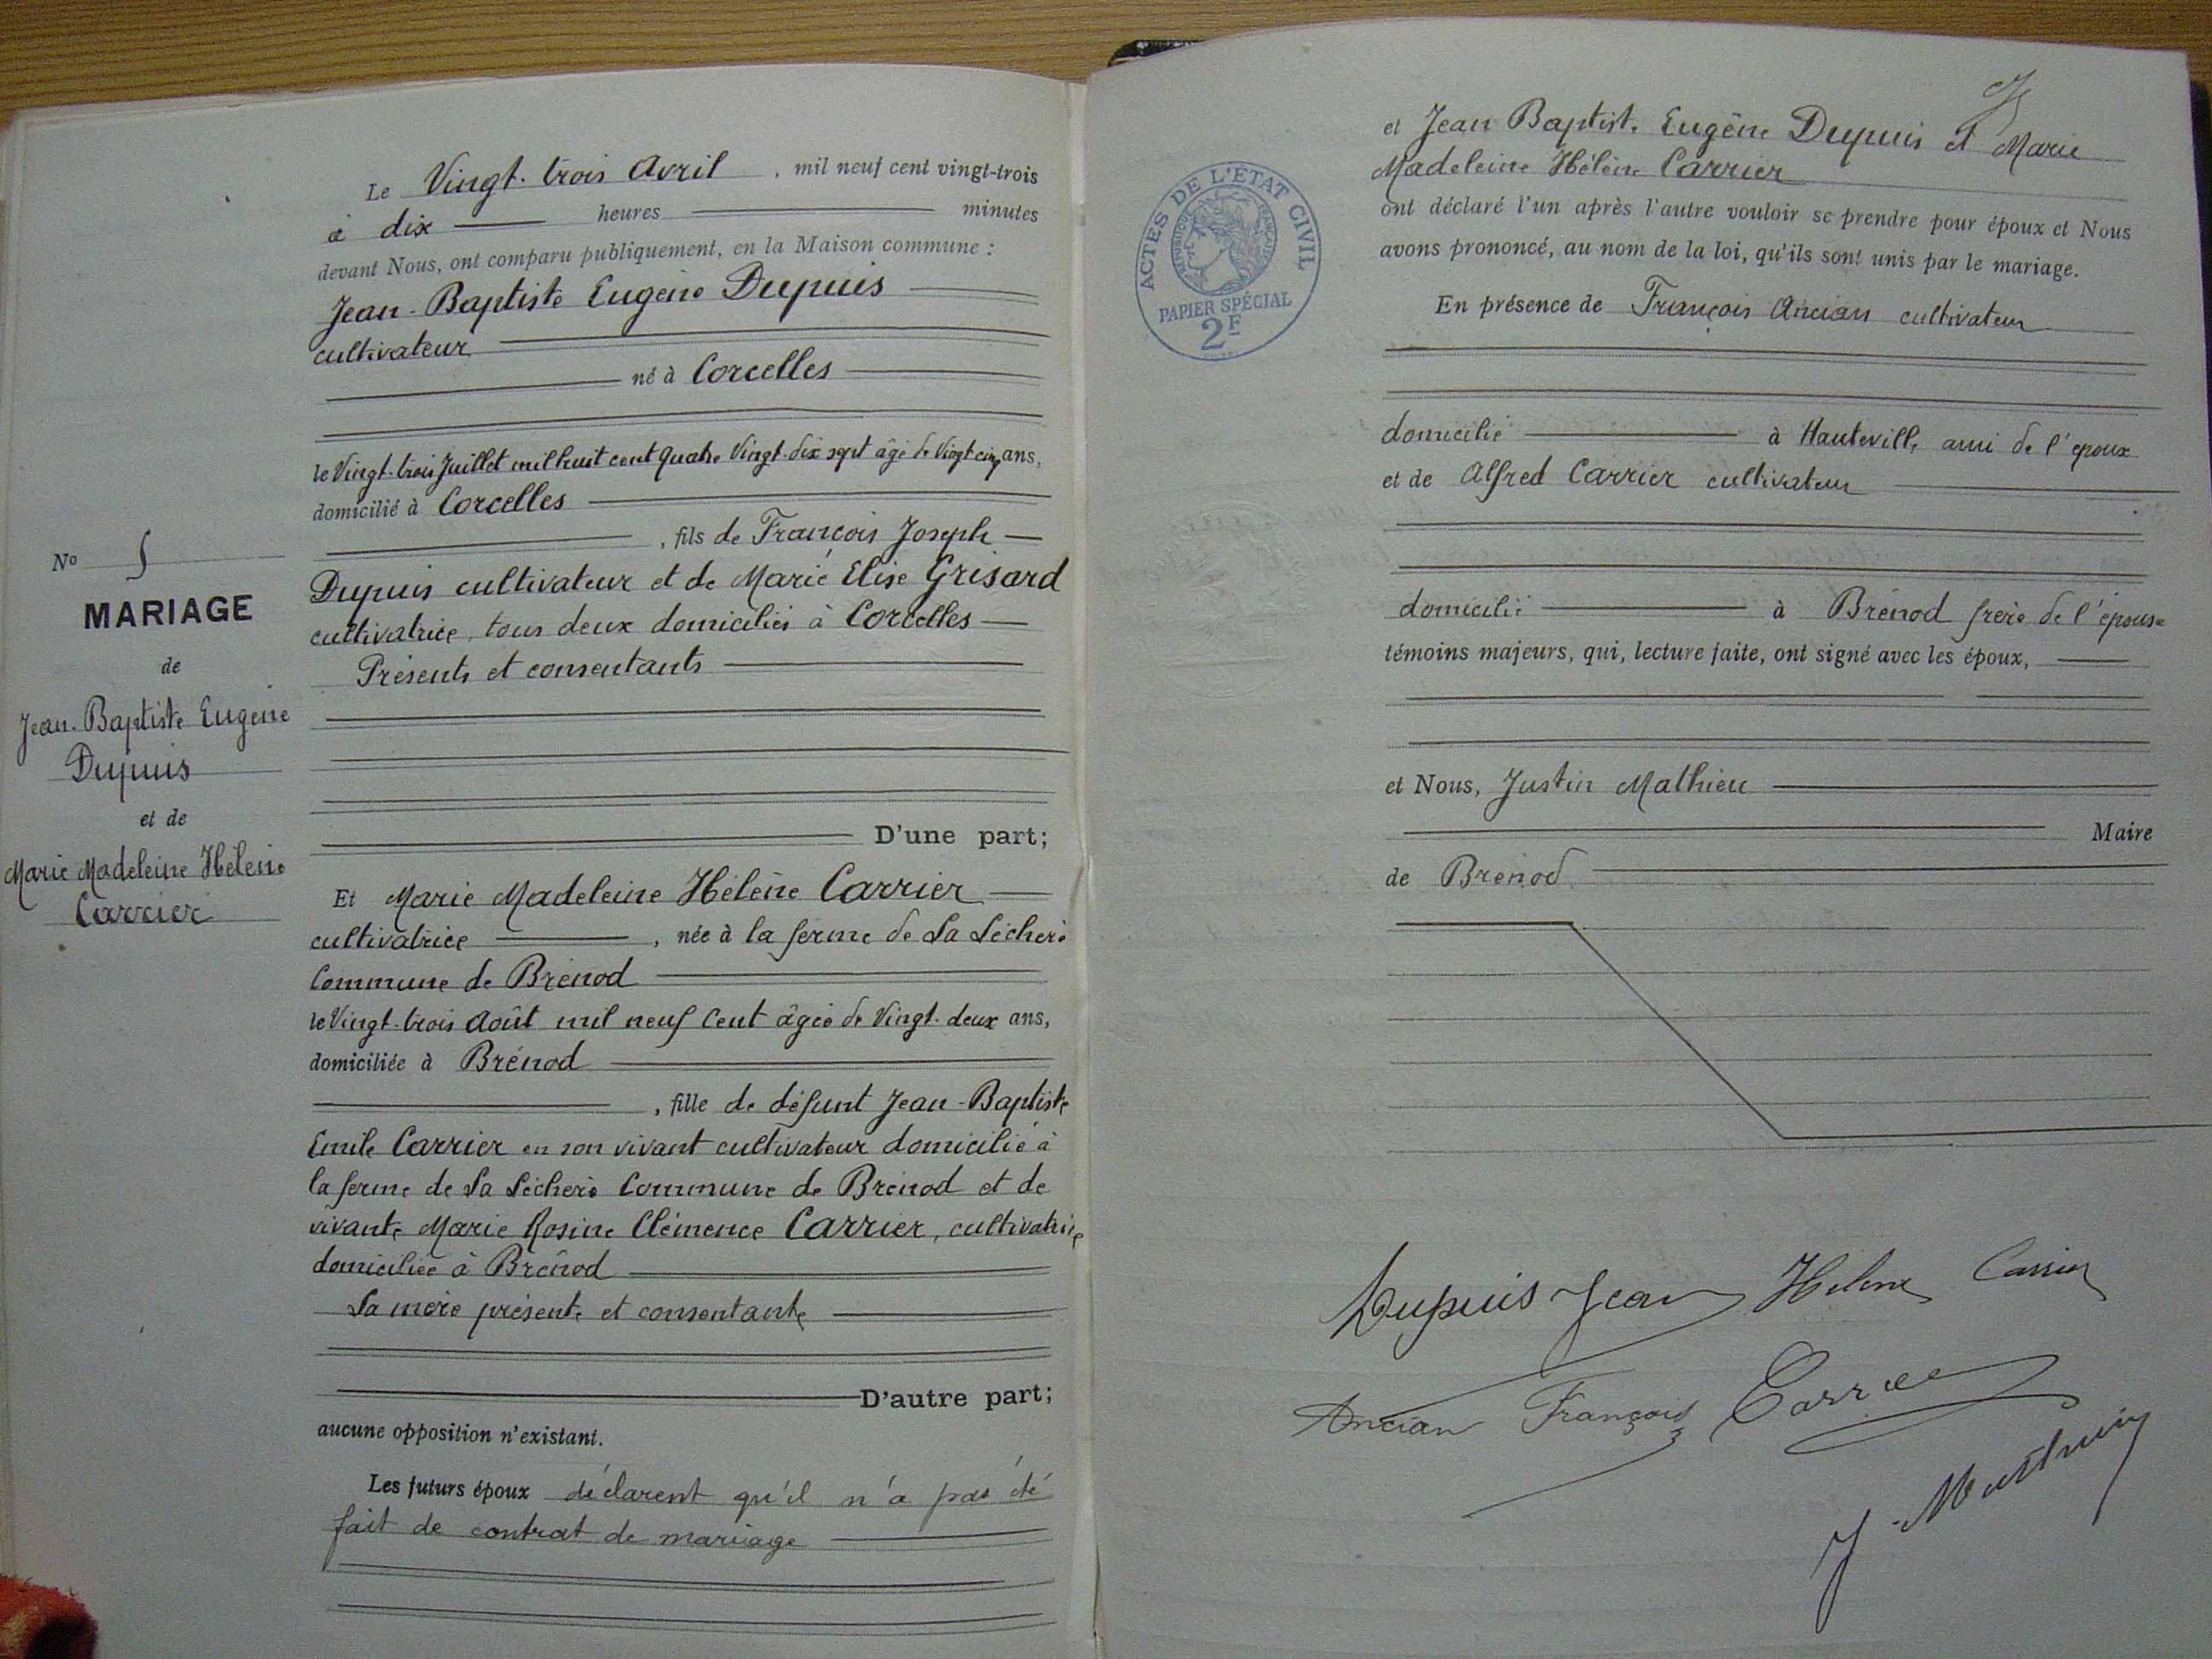 Le Vingt-trois Avril, mil neuf cent vingt-trois
à dix heures minutes
devant Nous, ont comparu publiquement, en la Maison commune :
Jean-Baptiste Eugène Dupuis
cultivateur
né à Corcelles
le Vingt-trois Juillet mil huit cent quatre Vingt-dix sept âgé de Vingt cinq ans,
domicilié à Corcelles
, fils de François Joseph
Dupuis cultivateur et de Marie Elise Grisard
cultivatrice, tous deux domiciliés à Corcelles
Présents et consentants
D'une part;
Et Marie Madeleine Hélène Carrier
cultivatrice, née à la ferme de La Léchère
Commune de Brénod
le Vingt-trois Août mil neuf Cent âgée de Vingt-deux ans,
domiciliée à Brénod
, fille de défunt Jean-Baptiste
Emile Carrier en son vivant cultivateur domicilié à
la ferme de La Léchère Commune de Brénod et de
vivante Marie Rosine Clémence Carrier, cultivatrice
domiciliée à Brénod
La mère présente et consentante
D'autre part;
aucune opposition n'existant.
Les futurs époux déclarent qu'il n'a pas été
fait de contrat de mariage
No 5
MARIAGE
de
Jean-Baptiste Eugène
Dupuis
et de
Marie Madeleine Hélène
Carrier
et Jean Baptiste Eugène Dupuis et Marie
Madeleine Hélène Carrier
ont déclaré l'un après l'autre vouloir se prendre pour époux et Nous
avons prononcé, au nom de la loi, qu'ils sont unis par le mariage.
En présence de François Ancian cultivateur
domicilié à Hauteville, ami de l'époux
et de Alfred Carrier cultivateur
domicilié à Brénod frère de l'épouse
témoins majeurs, qui, lecture faite, ont signé avec les époux,
et Nous, Justin Mathieu
Maire
de Brénod
Dupuis Jean Hélène Carrier
Ancian François Carrier
J. Mathieu
ACTES DE L'ÉTAT CIVIL
RÉPUBLIQUE FRANÇAISE
PAPIER SPÉCIAL
2F